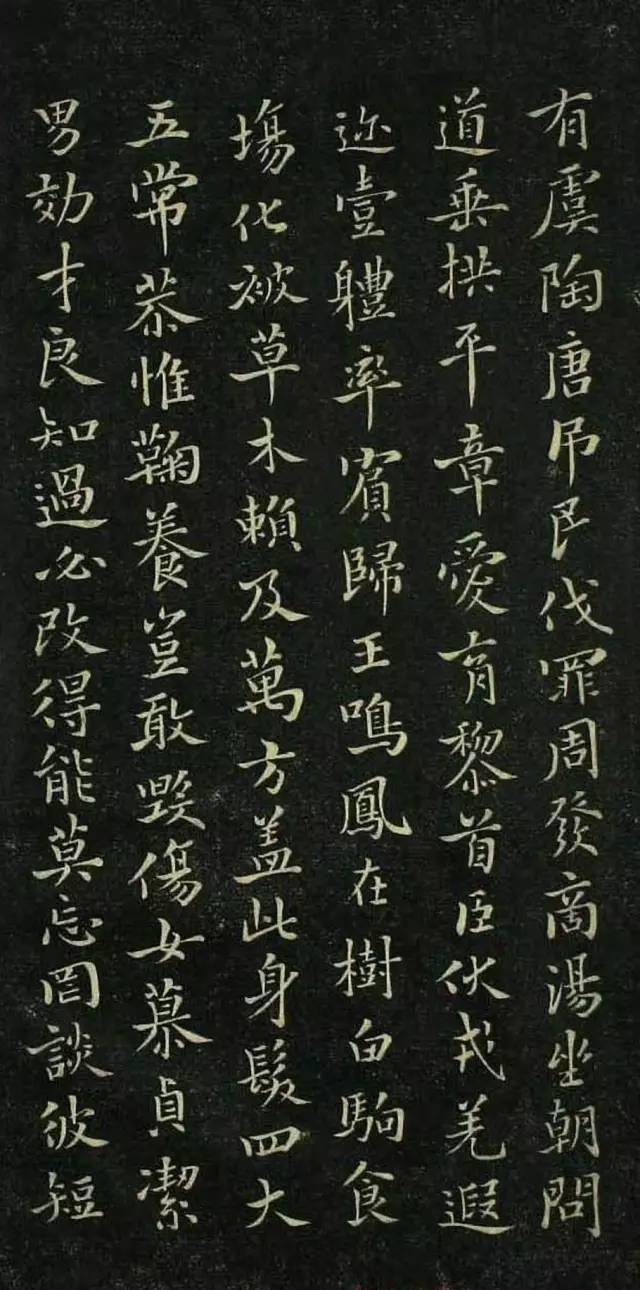 有虞陶唐吊民伐罪周發商湯坐朝問
道垂拱平章愛育黎首臣伏戎羌遐
迩壹軆率賓歸王鳴鳳在樹白駒食
場化被草木賴及萬方盖此身髮四大
五常恭惟鞠養豈敢毀傷女慕貞潔
男効才良知過必改得能莫忘罔談彼短